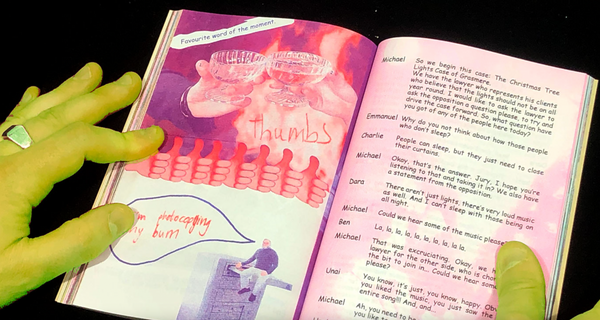 Favourite word of the moment...
thumbs
I'm photocopying
my bum
Michael So we begin this case: The Christmas Tree
Lights Case of Grasmere.
We have the lawyer who represents his clients
who believe that the lights should not be on all
year round. I would like to ask the lawyer to
ask the opposition a question please, to try and
drive the case forward. So, what question have
you got of any of the people here today?
Emmanuel Why do you not think about how those people
who don't sleep?
Charlie People can sleep, but they just need to close
their curtains.
Michael Okay, that's the answer. Jury, I hope you're
listening to that and taking it in? We also have
a statement from the opposition.
Dara There aren't just lights, there's very loud music
as well. And I can't sleep with those being on
all night.
Michael Could we hear some of the music please
Ben La, la, la, la, la, la, la, la, la.
Michael That was excruciating. Okay, we
lawyer for the other side, who is
the bit to join in... Could we hear some
please?
Unai You know, it's just, you know, happy
you liked the music, you just saw the
entire song!! And, and...
Michael Ah, you need to
you like to